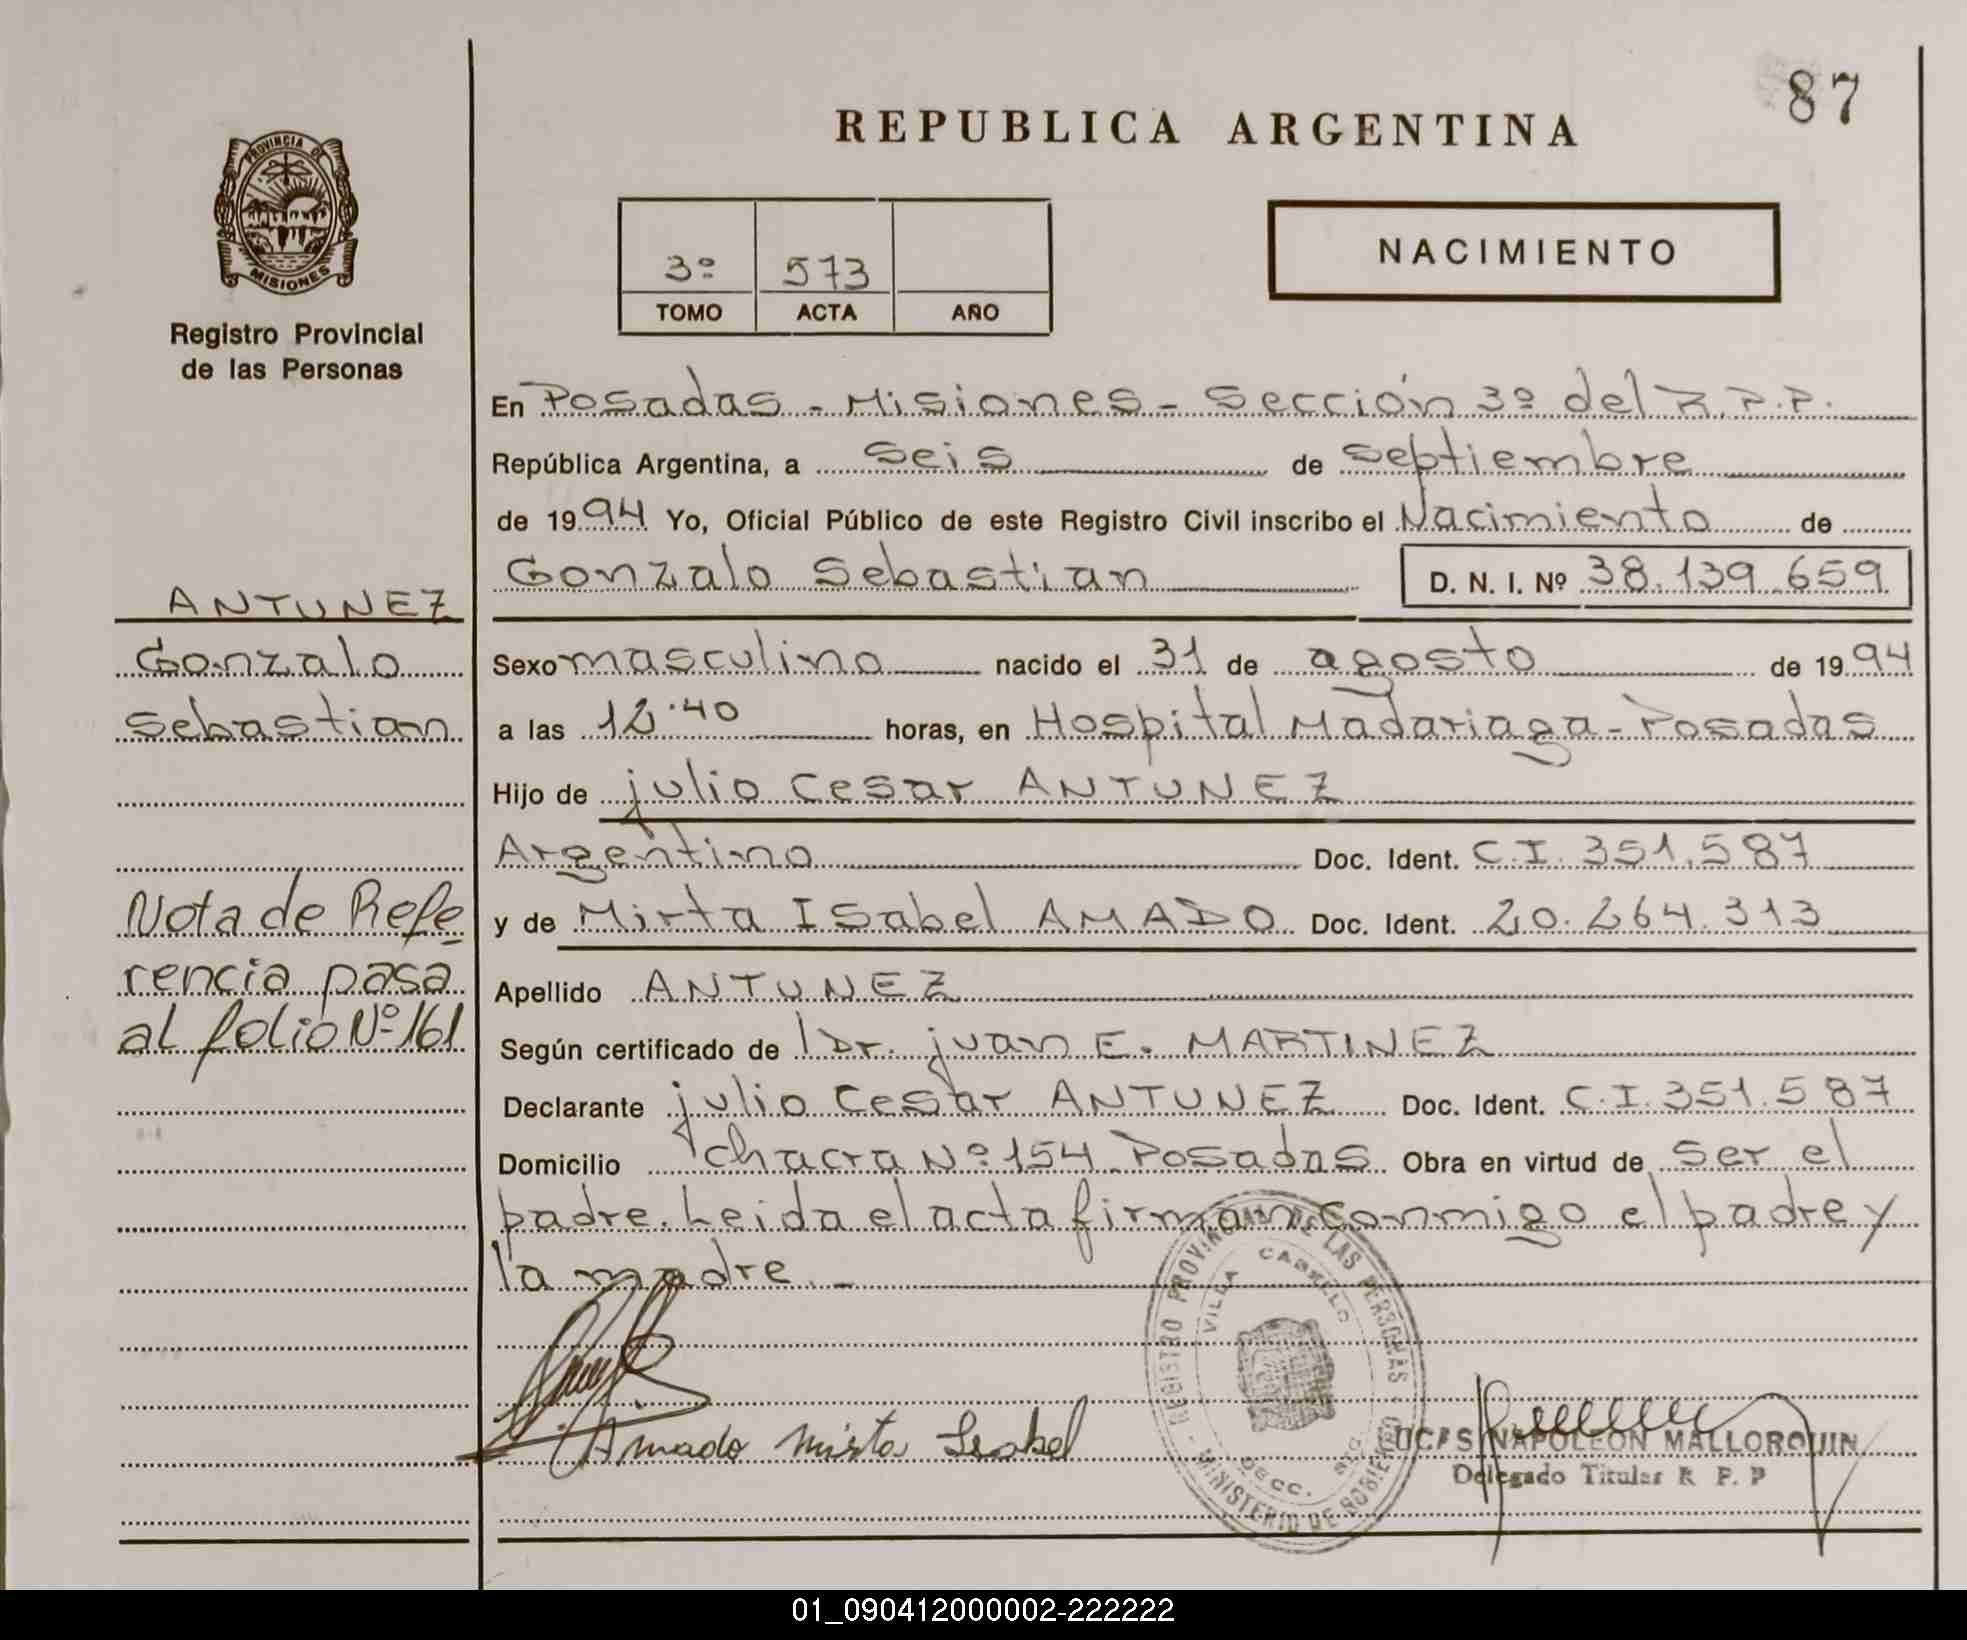 87
REPUBLICA ARGENTINA
PROVINCIA DE
MISIONES
Registro Provincial
de las Personas
3º 573
TOMO ACTA AÑO
NACIMIENTO
En Posadas - Misiones - Sección 3º del R.P.P.
República Argentina, a seis de septiembre
de 1994 Yo, Oficial Público de este Registro Civil inscribo el Nacimiento de
Gonzalo Sebastian D. N. I. Nº 38.139.659
ANTUNEZ
Gonzalo
Sebastian
Sexo masculino nacido el 31 de agosto de 1994
a las 12.40 horas, en Hospital Madariaga - Posadas
Hijo de julio Cesar ANTUNEZ
Argentino Doc. Ident. C.I. 351.587
y de Mirta Isabel AMADO Doc. Ident. 20.264.313
Nota de Refe
rencia pasa
al folio Nº 161
Apellido ANTUNEZ
Según certificado de Dr. juan E. MARTINEZ
Declarante julio Cesar ANTUNEZ Doc. Ident. C.I. 351.587
Domicilio chacra Nº 154 Posadas Obra en virtud de ser el
padre. Leida el acta firman conmigo el padre y
la madre. -
REGISTRO PROVINCIAL DE LAS PERSONAS
VILLA CABELLO
SECC. 3ra
MINISTERIO DE GOBIERNO
Amado Mirta Isabel
NAPOLEON MALLORQUIN
Delegado Titular R P. P
01_090412000002-222222